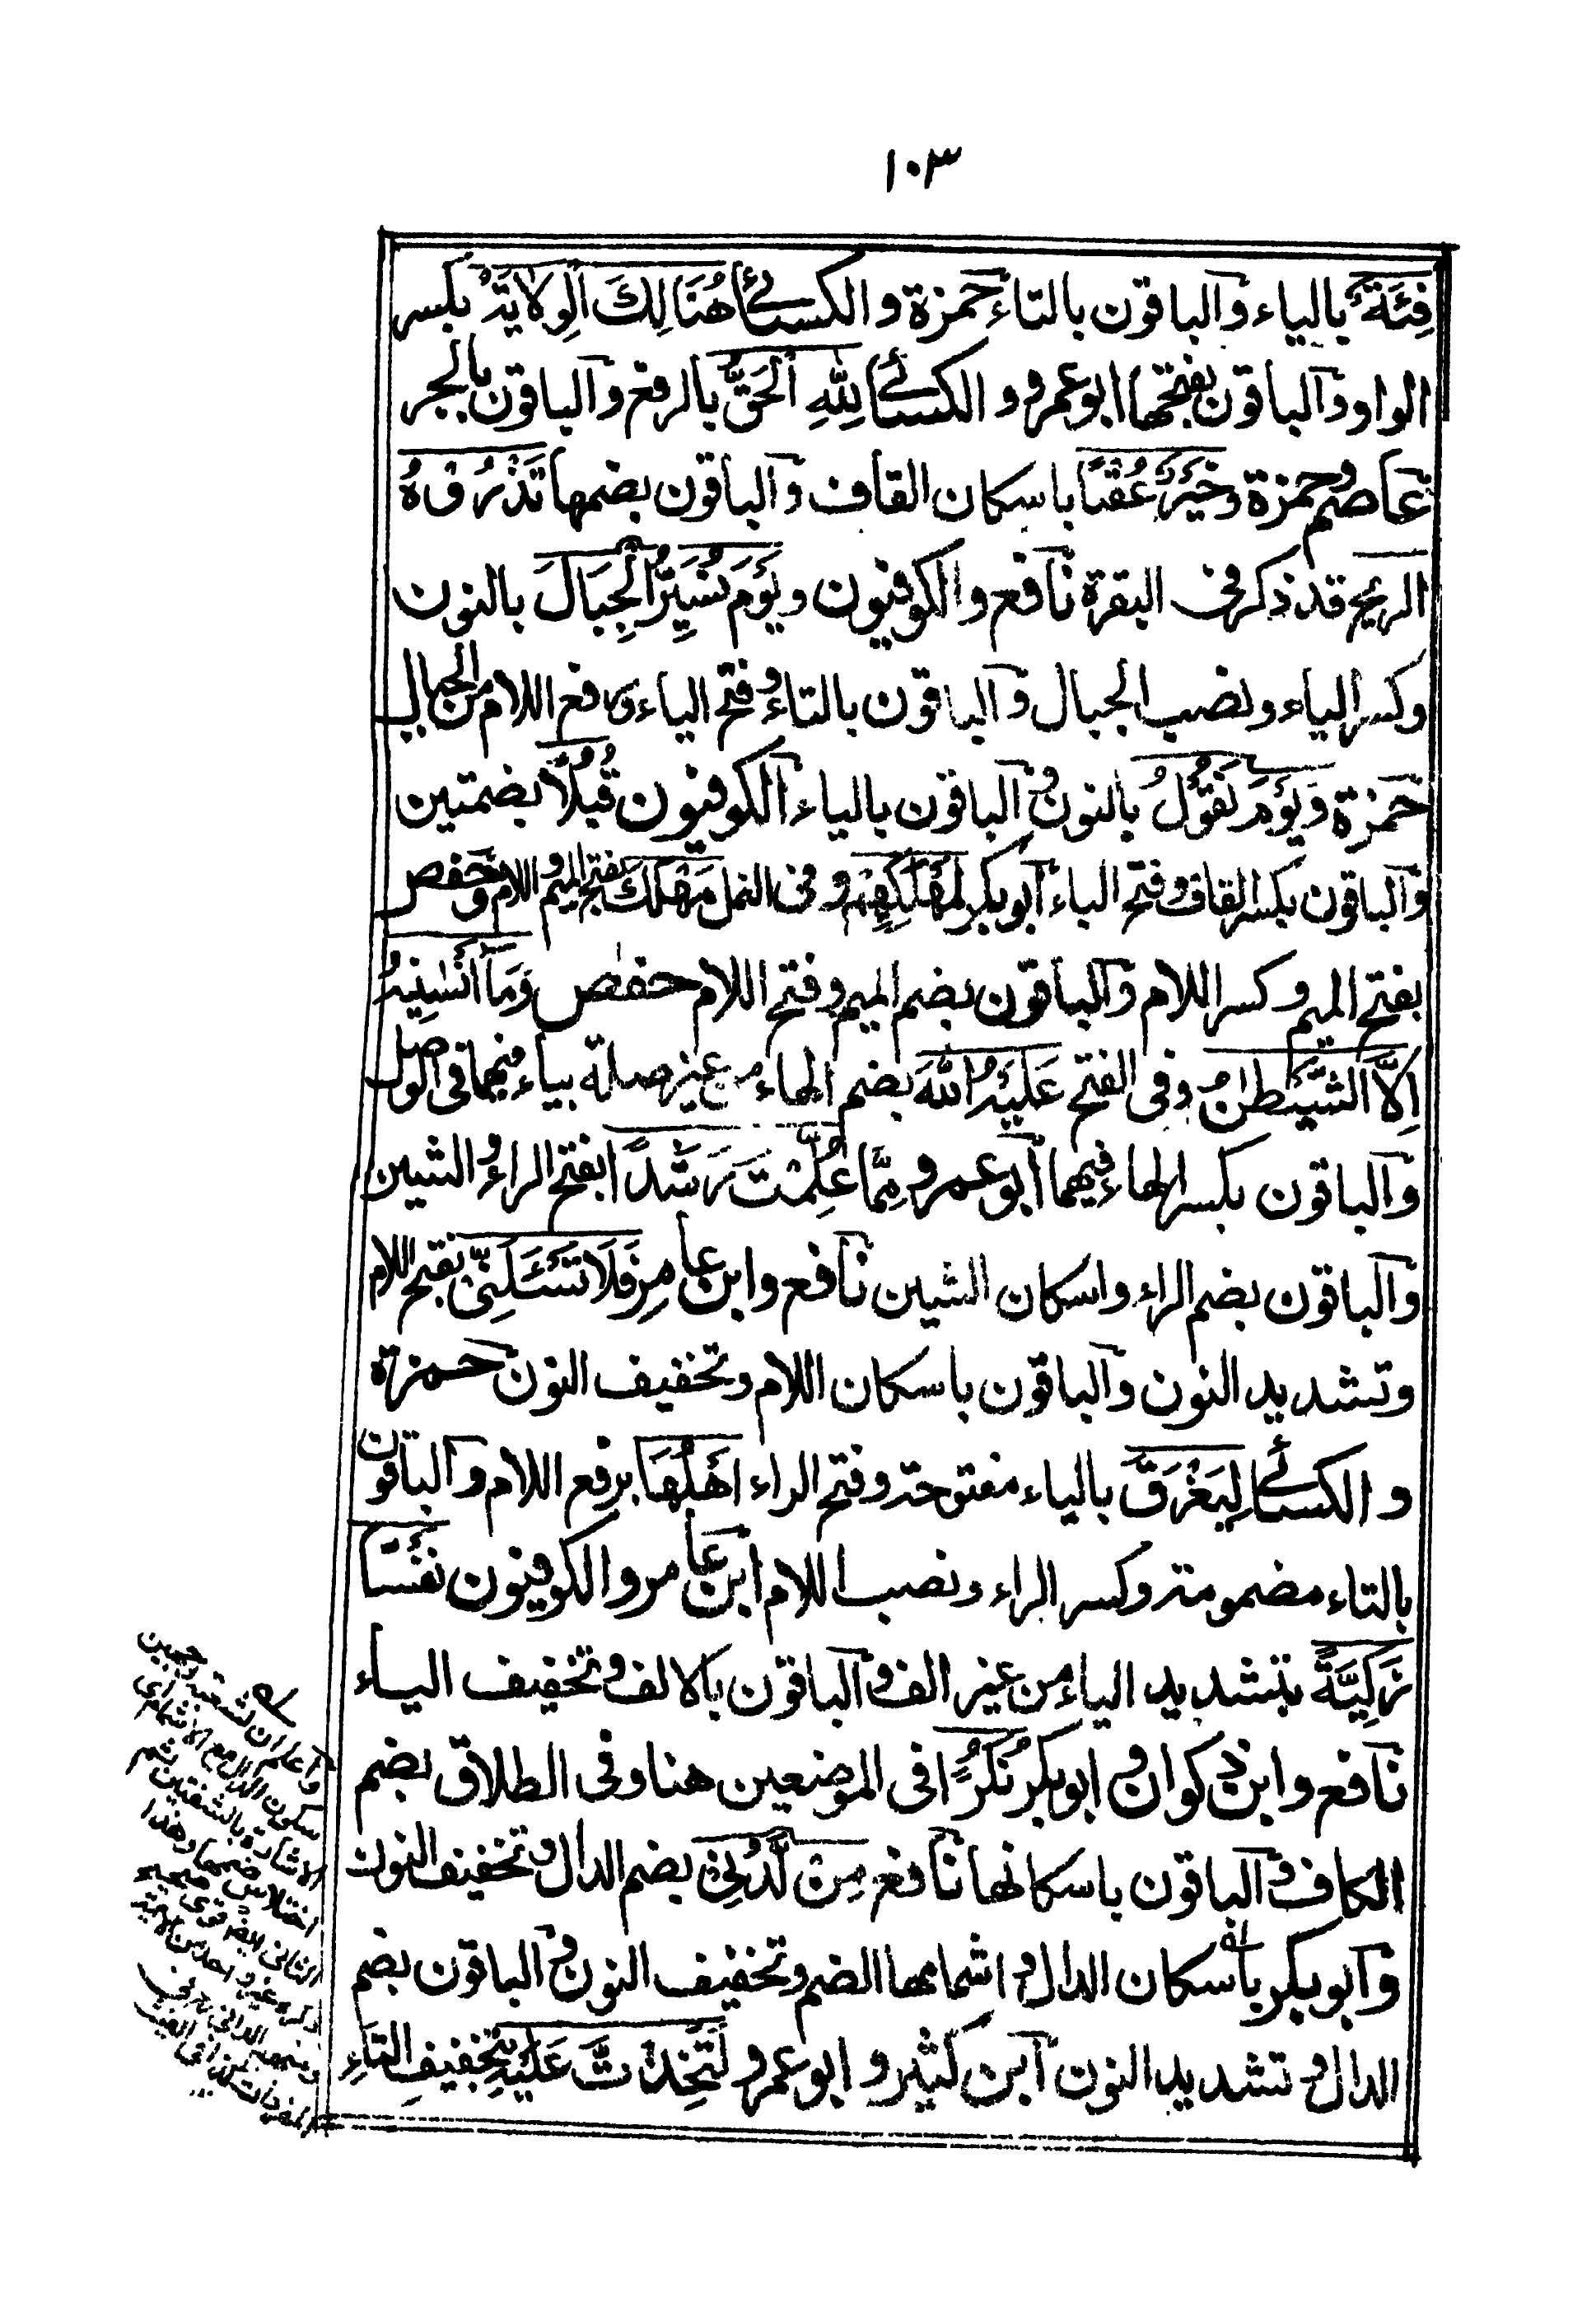 ١٠٣
فِئَةٌ بالياء والباقون بالتاء حمزة والكسائي هُنَالِكَ الْوِلَايَةُ بكسر
الواو والباقون بفتحها ابو عمرو والكسائي لِلّٰهِ الْحَقُّ بالرفع والباقون بالجر
عاصم وحمزة وخَيْرٌ عُقْبًا باسكان القاف والباقون بضمها تَذْرُوْهُ
الريح قد ذكر في البقرة نافع والكوفيون ويَوْمَ نُسَيِّرُ الْجِبَالَ بالنون
وكسر الياء ونصب الجبال والباقون بالتاء وفتح الياء ورفع اللام من الجبال
حمزة وَيَوْمَ نَقُوْلُ بالنون والباقون بالياء الكوفيون قُبُلًا بضمتين
والباقون بكسر القاف وفتح الباء ابو بكر لِمَهْلَكِهِمْ وفي النمل مَهْلَكَ بفتح الميم واللام وحفص
بفتح الميم وكسر اللام والباقون بضم الميم وفتح اللام حفص وَمَا أَنْسٰنِيْهُ
اِلَّا الشَّيْطٰنُ وفي الفتح عَلَيْهُ اللّٰهَ بضم الهاء من غير صلة بياء منهما في الوصل
والباقون بكسر الهاء فيهما ابو عمرو مِمَّا عُلِّمْتَ رَشَدًا بفتح الراء والشين
والباقون بضم الراء واسكان الشين نافع وابن عامر فَلَا تَسْئَلَنِّيْ بفتح اللام
وتشديد النون والباقون باسكان اللام وتخفيف النون حمزة
والكسائي لِيَغْرَقَ بالياء مفتوحة وفتح الراء اَهْلُهَا برفع اللام والباقون
بالتاء مضمومة وكسر الراء ونصب اللام ابن عامر والكوفيون نَفْسًا
زَكِيَّةً بتشديد الياء من غير الف والباقون بالالف وتخفيف الياء
نافع وابن ذكوان وابو بكر نُكُرًا في الموضعين هنا وفي الطلاق بضم
الكاف والباقون باسكانها نافع مِنْ لَّدُنِيْ بضم الدال وتخفيف النون
وابو بكر باسكان الدال واشمامها الضم وتخفيف النون والباقون بضم
الدال وتشديد النون ابن كثير وابو عمرو لَتَخِذْتَ عَلَيْهِ بتخفيف التاء
واعلم ان لشعبة وجهين
سكون الدال مع الاشمام اي
الاشارة بالشفتين
اختلاس ضمها وهذا